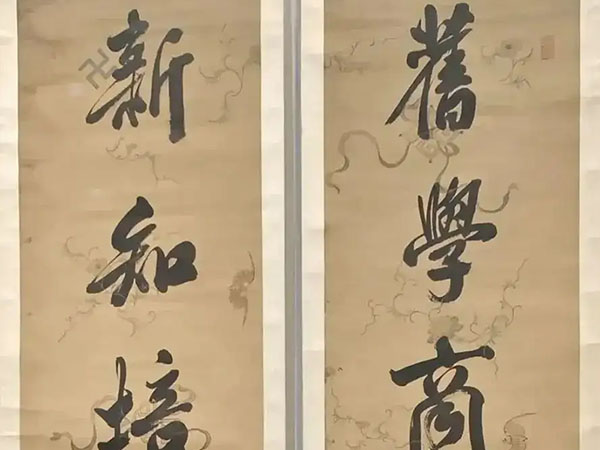 舊學商
新知培